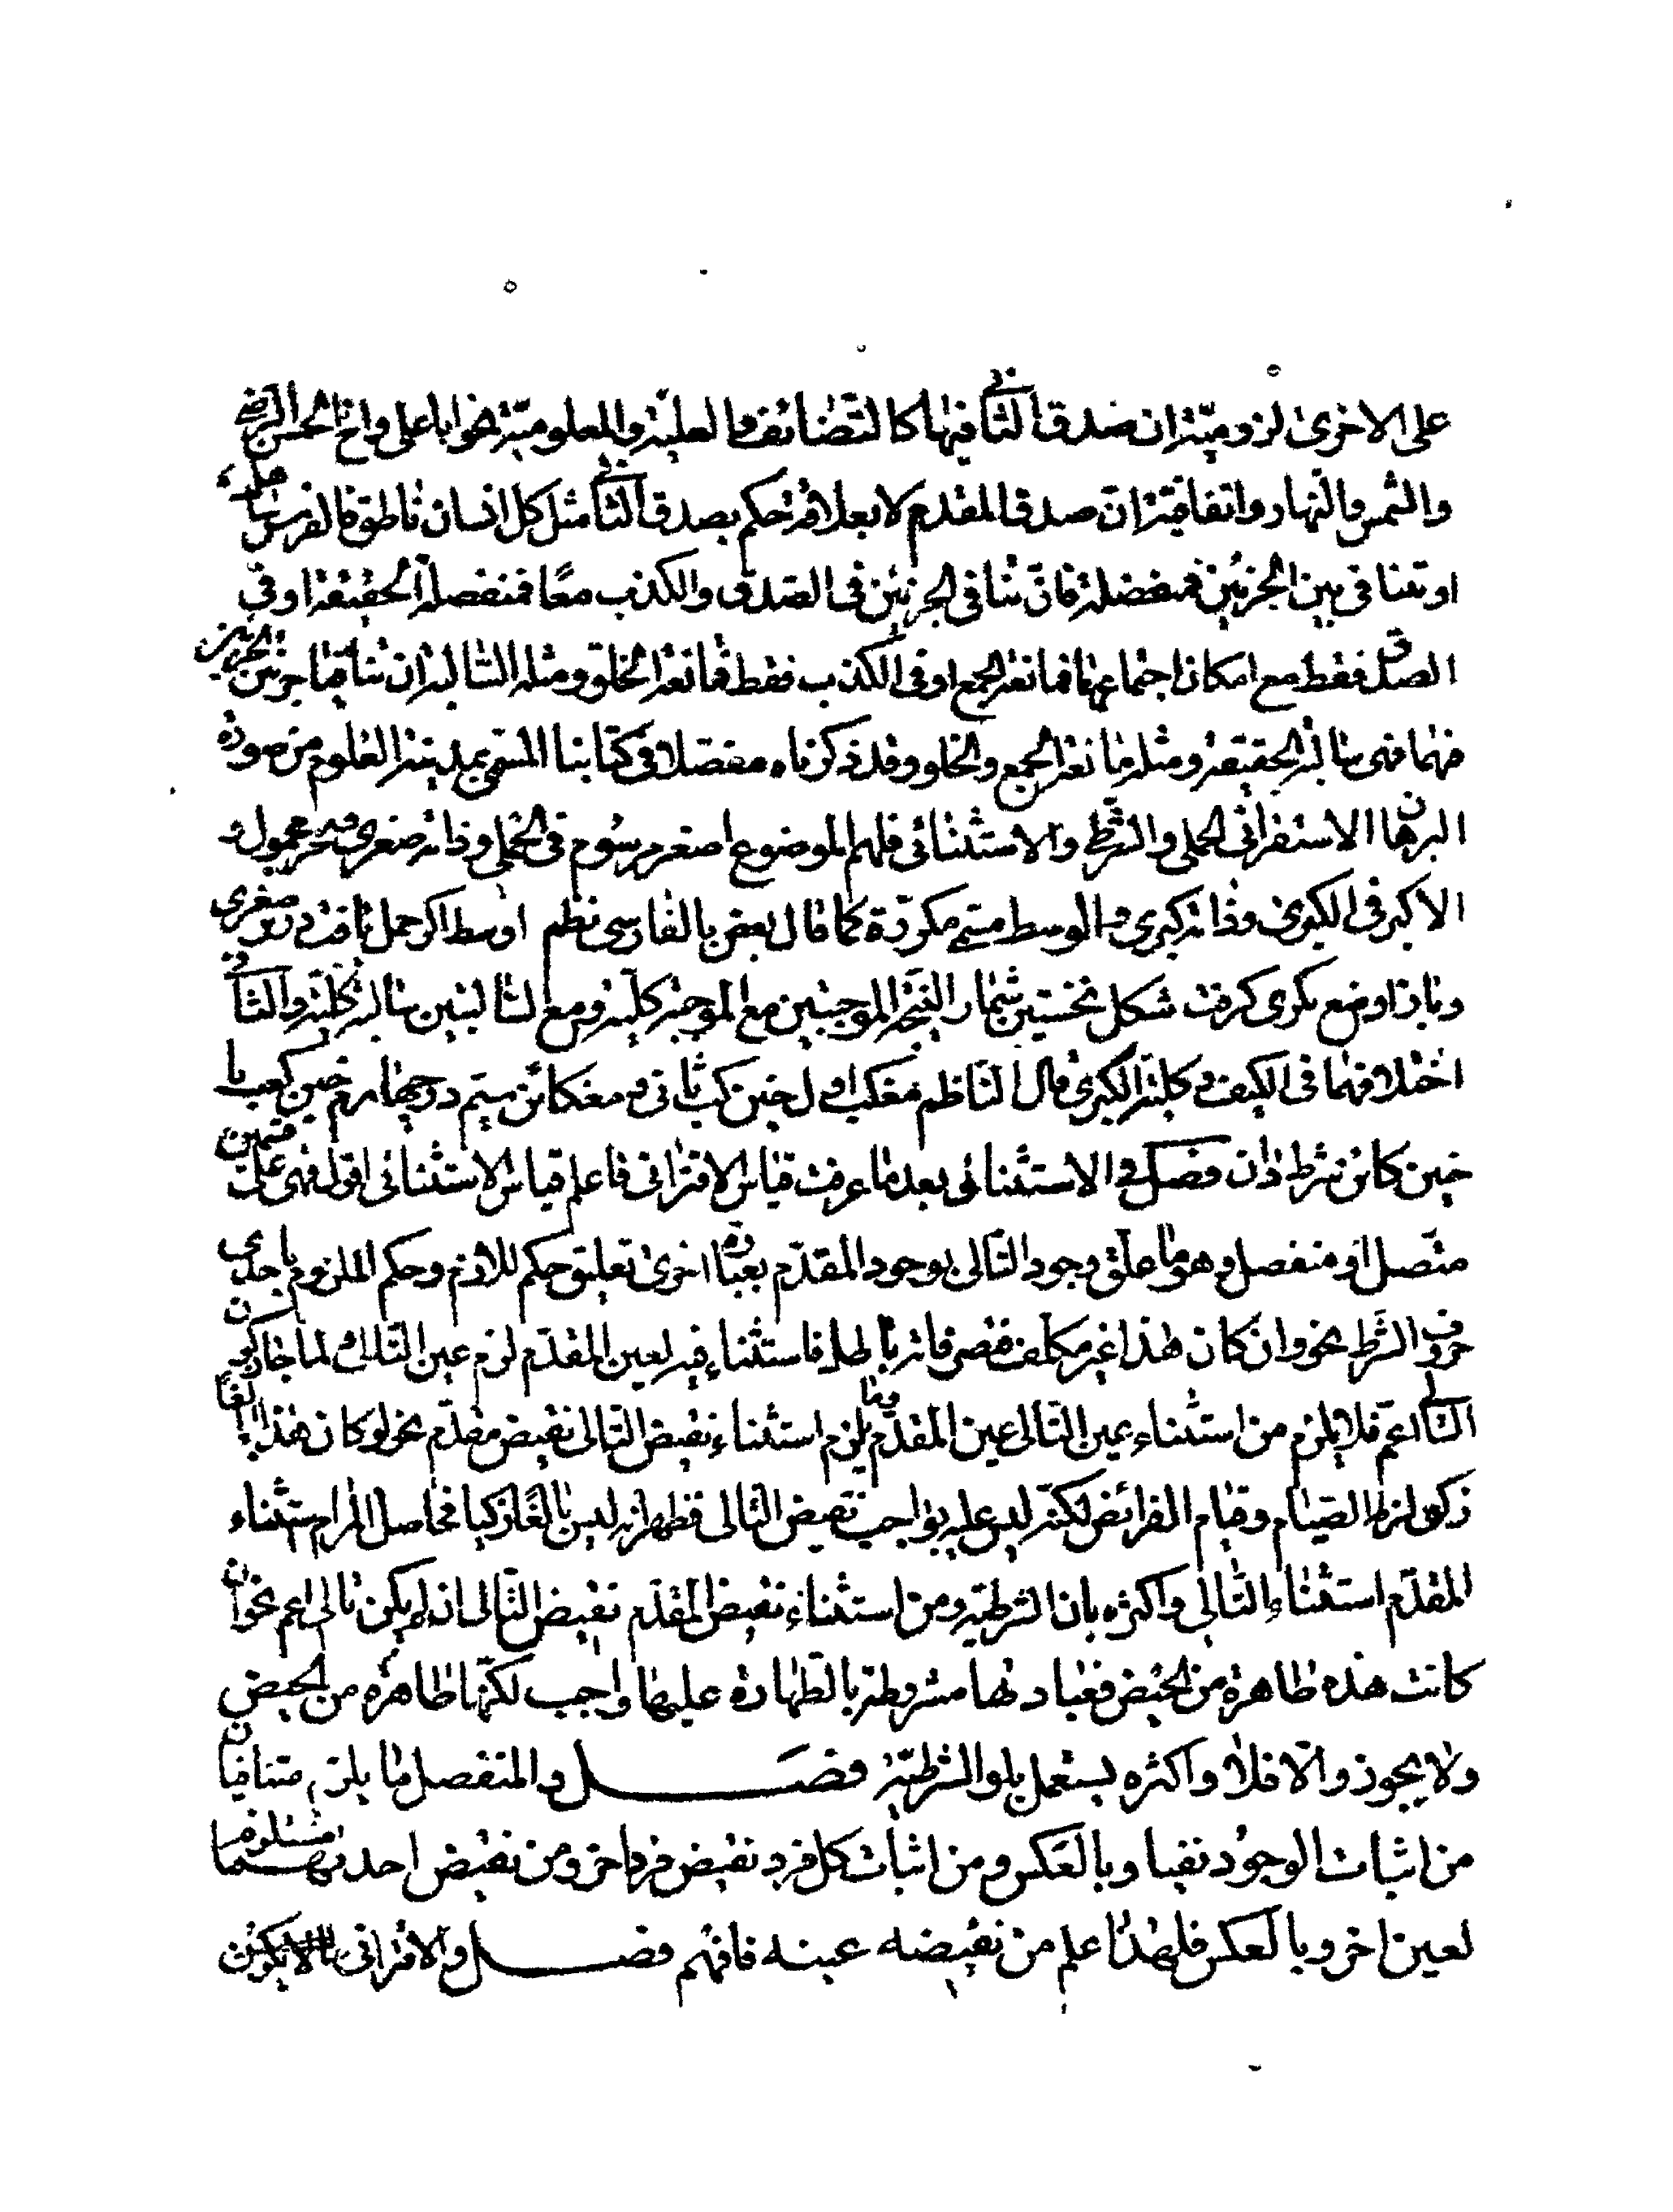 على الاخرى لزوميّة ان صدق التالى فيها كالتّضائف والعليّة والمعلوميّة نحو ابا على واخ الحسن الرضى
والشمس والنهار واتفاقيّة ان صدق المقدم لا بعلاقة حكم بصدق التالى مثل كل انسان ناطق فالفرس صاهل
او تنافى بين الجزئين فمنفصلة فان تنافى الجزئين فى الصّدق والكذب معًا فمنفصلة الحقيقة او فى
الصدق فقط مع امكان اجتماعهما فمانعة الجمع او فى الكذب فقط فمانعة الخلوّ ومثله السّالبة ان تناقيا جزئين
فهما فهى سالبة الحقيقة ومثله مانعة الجمع والخلوو وقد ذكرناه مفصّلا فى كتابنا المسمّى بمدينة العلوم من صورة
البرهان الاستقرائى الحملى والشرطى والاستثنائى فلهم الموضوع اصغر مرسوم فى الحملى وذاته صغرى محمول
الاكبر فى الكبرى وذاته كبرى والوسط متى مكررة كما قال بعض بالفارسى نظم اوسط اكر حمل يافت در صغرى
وباز وضع بكرى كرفت شكل نخستين شمار النتيجة الموجبتين مع الموجبة كلية ومع السّالبتين سالبة كليّة والثانى
اختلافهما فى الكيف وكلية الكبرى قال النّاظم مغكب اول خين كب ثانى و مغكائن سيّم در چهارم خين كعب يا
خين كائن شرط دان فصل فى الاستثنائى بعد ما عرفت قياس الاقترانى فاعلم قياس الاستثنائى اقول فهى على قسمين
متّصل او منفصل وهو ما علّق وجود التّالى بوجود المقدّم بعبارة اخرى تعليق حكم للازم وحكم الملزوم باحدى
حروف الشّرط نحو ان كان هذا غير مكلف فصرفاته باطل فاستثناء فيه لعين المقدّم لزم عين التّالى لما جاز كون
التالى اعمّ فلا يلزم من استثناء عين التّالى عين المقدّم وما يلزم استثناء نقيض التّالى نقيض مقدّم نحو لو كان هذا بالغًا
زكى لزم الصّيام وقيام الفرائض لكنّه ليس عليه بواجب نقيض التّالى فظهر انه ليس بالغًا زكيا فحاصل المرام استثناء
المقدّم استثناء التّالى واكثره بان الشرطيّة ومن استثناء نقيض المقدّم نقيض التّالى ان لم يكن تالى اعم نحو ان
كانت هذه طاهرة من الحيض فعبادتها مشروطة بالطّهارة عليها واجب لكنّها طاهرة من الحيض
ولا يجوز والّا فلا واكثره يستعمل بلو الشّرطيّة فصل والمنفصل ما يلزم متنافيان
من اثبات الوجود نفيا وبالعكس ومن اثبات كل فرد نقيض فرد اخر ومن نقيض احدهما مستلزم
لعين اخر وبالعكس فلهذا علم من نقيضه عينه فافهم فصل والاقترانى ما لا يكون